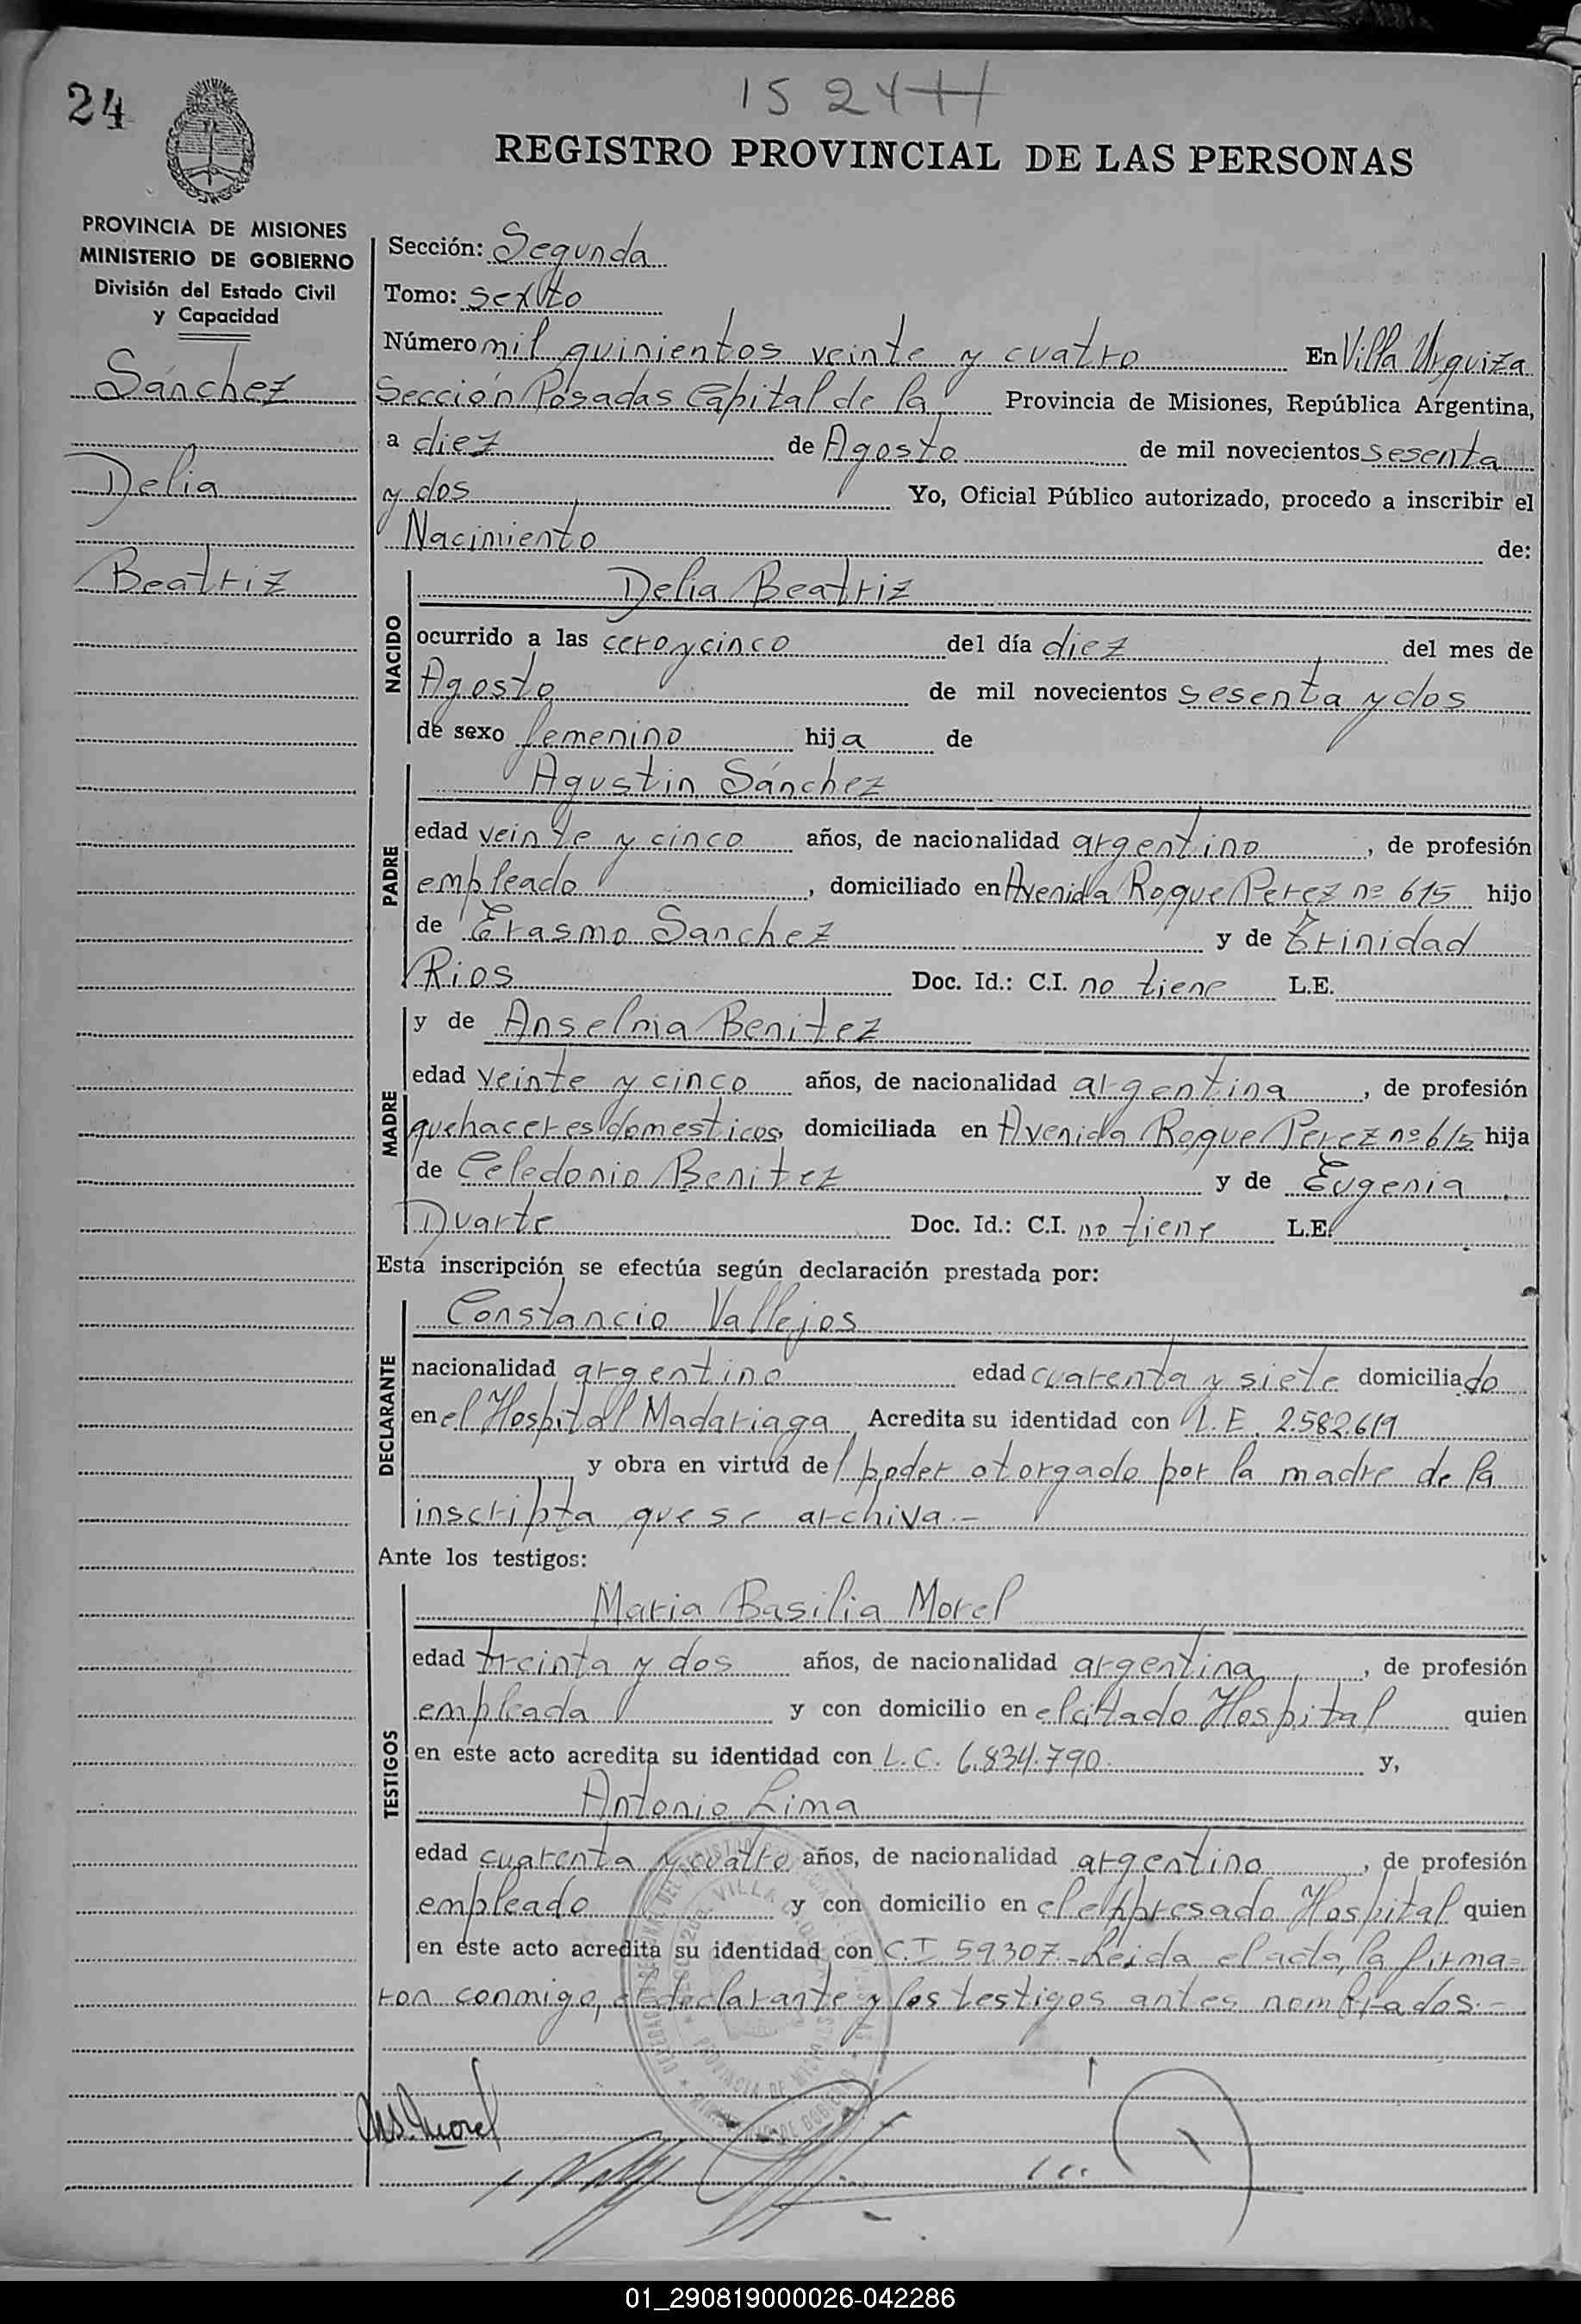 24
1524
REGISTRO PROVINCIAL DE LAS PERSONAS
PROVINCIA DE MISIONES
MINISTERIO DE GOBIERNO
División del Estado Civil
y Capacidad
Sánchez
Delia
Beatriz
Sección: Segunda
Tomo: sexto
Número mil quinientos veinte y cuatro En Villa Urquiza
Sección Posadas Capital de la Provincia de Misiones, República Argentina,
a diez de Agosto de mil novecientos sesenta
y dos Yo, Oficial Público autorizado, procedo a inscribir el
Nacimiento de:
NACIDO
Delia Beatriz
ocurrido a las cero y cinco del día diez del mes de
Agosto de mil novecientos sesenta y dos
de sexo femenino hija de
PADRE
Agustin Sánchez
edad veinte y cinco años, de nacionalidad argentino, de profesión
empleado, domiciliado en Avenida Roque Perez nº 615 hijo
de Erasmo Sanchez y de Trinidad
Rios Doc. Id.: C.I. no tiene L.E.
MADRE
y de Anselma Benitez
edad veinte y cinco años, de nacionalidad argentina, de profesión
quehaceres domesticos, domiciliada en Avenida Roque Perez nº 615 hija
de Celedonio Benitez y de Eugenia
Duarte Doc. Id.: C.I. no tiene L.E.
Esta inscripción se efectúa según declaración prestada por:
DECLARANTE
Constancio Vallejos
nacionalidad argentino edad cuarenta y siete domiciliado
en el Hospital Madariaga Acredita su identidad con L.E. 2.582.619
y obra en virtud del poder otorgado por la madre de la
inscripta que se archiva.-
Ante los testigos:
TESTIGOS
Maria Basilia Morel
edad treinta y dos años, de nacionalidad argentina, de profesión
empleada y con domicilio en el citado Hospital quien
en este acto acredita su identidad con L.C. 6.834.790 y,
Antonio Lima
edad cuarenta y cuatro años, de nacionalidad argentino, de profesión
empleado y con domicilio en el expresado Hospital quien
en este acto acredita su identidad con C.I 59.307.- Leida el acta, la firma=
ron conmigo, el declarante y los testigos antes nombrados.-
Morel
01_290819000026-042286